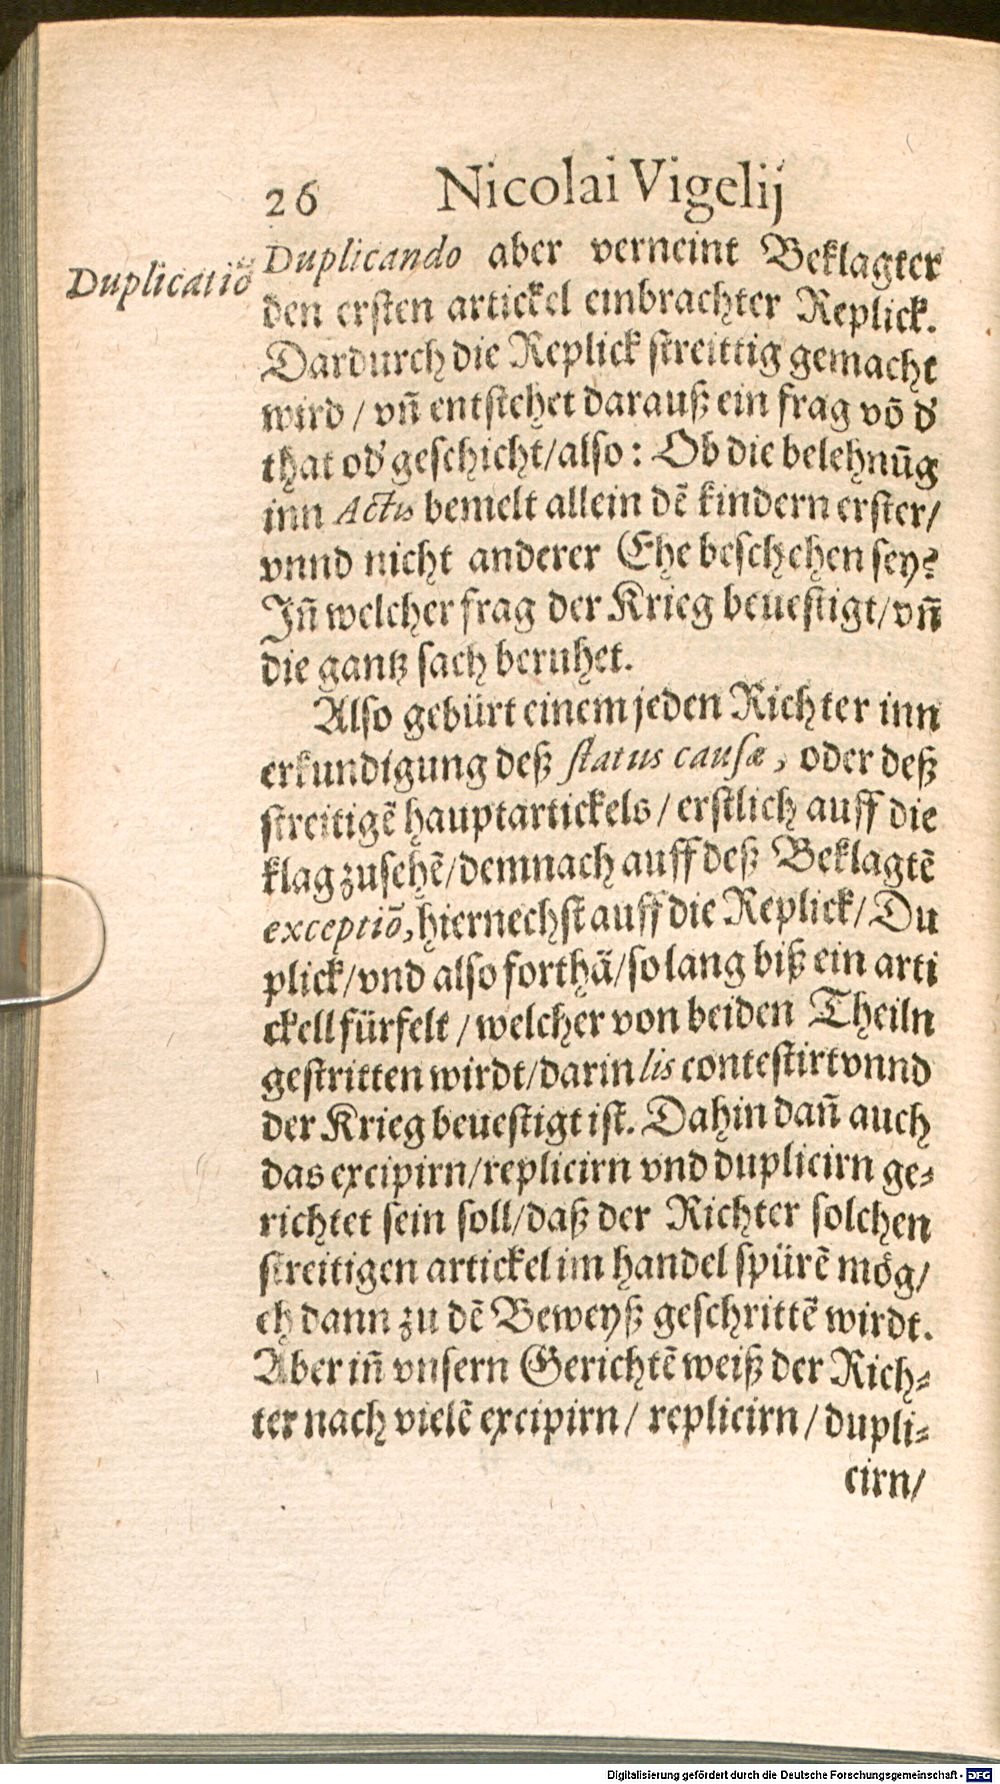 26 Nicolai Vigelij
Duplicatiō
Duplicando aber verneint Beklagter
den ersten artickel einbrachter Replick.
Dardurch die Replick streittig gemacht
wird / vñ entstehet darauß ein frag vō d'
that od' geschicht/also: Ob die belehnūg
inn Actis bemelt allein dē kindern erster/
vnnd nicht anderer Ehe beschehen sey?
Iñ welcher frag der Krieg beuestigt/vñ
die gantz sach beruhet.
Also gebürt einem jeden Richter inn
erkundigung deß status causæ, oder deß
streitigē hauptartickels / erstlich auff die
klag zusehē/demnach auff deß Beklagtē
exceptiō, hiernechst auff die Replick/ Du
plick/vnd also forthā/so lang biß ein arti
ckell fürfelt / welcher von beiden Theiln
gestritten wirdt/darin lis contestirt vnnd
der Krieg beuestigt ist. Dahin dañ auch
das excipirn/replicirn vnd duplicirn ge⸗
richtet sein soll/daß der Richter solchen
streitigen artickel im handel spürē mög/
eh dann zu dē Beweyß geschrittē wirdt.
Aber iñ vnsern Gerichtē weiß der Rich⸗
ter nach vielē excipirn/ replicirn / dupli⸗
cirn/
Digitalisierung gefördert durch die Deutsche Forschungsgemeinschaft - DFG